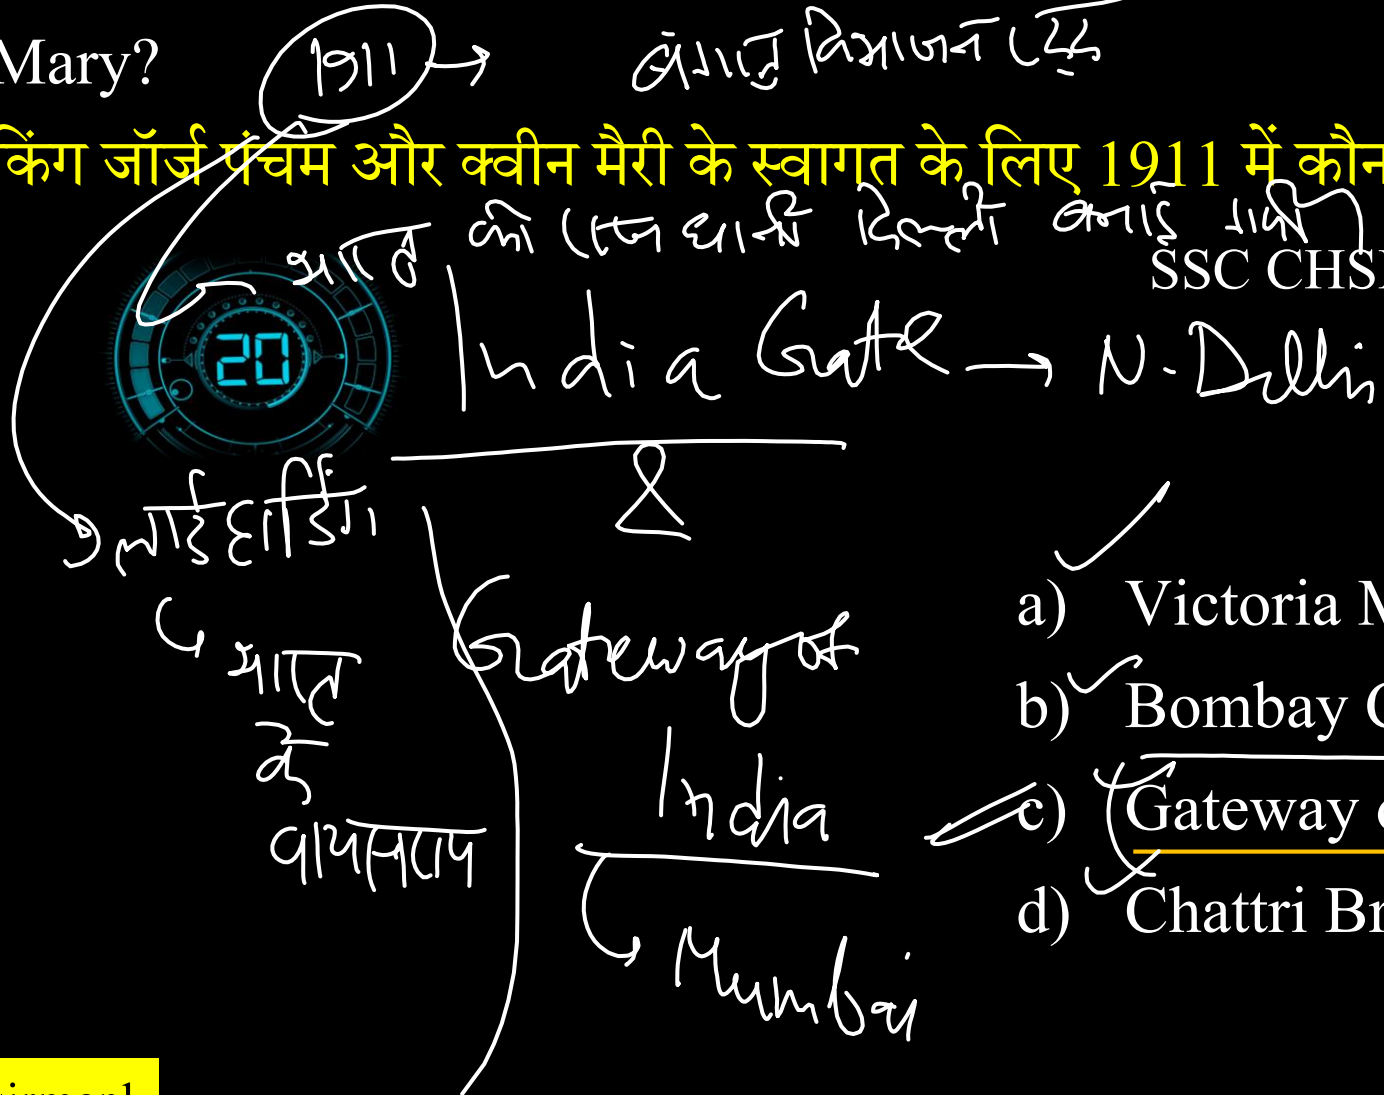 Mary?
1911 → बंगाल विभाजन रद्द
किंग जॉर्ज पंचम और क्वीन मैरी के स्वागत के लिए 1911 में कौन
भारत की राजधानी दिल्ली बनाई गयी
SSC CHS
India Gate → N. Delhi
20
&
लार्ड हार्डिंग
भारत
के
वायसराय
Gateway of
India
Mumbai
a) Victoria
b) Bombay
c) Gateway
d) Chattri